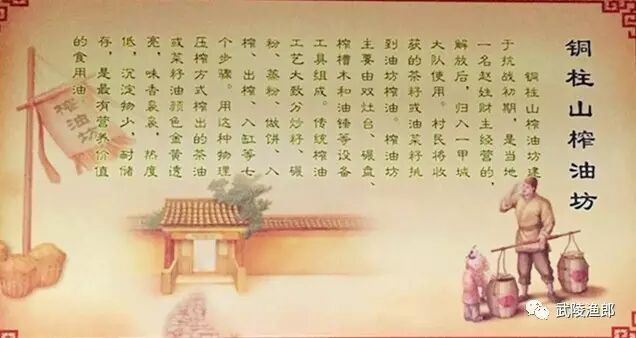 铜柱山榨油坊
铜柱山榨油坊建
于抗战初期，是当地
一名赵姓财主经营的，
解放后，归入一甲城
大队使用。村民将收
获的茶籽或油菜籽挑
到油坊榨油。榨油坊
主要由双灶台、碾盘、
榨槽木和油锤等设备
工具组成。传统榨油
工艺大致分炒籽、碾
粉、蒸粉、做饼、入
榨、出榨、入缸等七
个步骤。用这种物理
压榨方式榨出的茶油
或菜籽油颜色金黄透
亮，味香袅袅，热度
低，沉淀物少，耐储
存，是最有营养价值
的食用油。
榨油坊
武陵渔郎